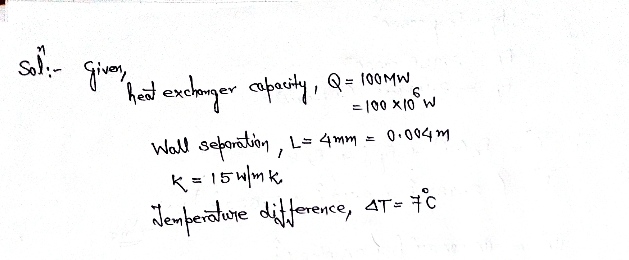 Solⁿ:- Given,
heat exchanger capacity, Q = 100MW
= 100 × 10⁶ W
Wall separation, L = 4mm = 0.004 m
K = 15 W/m K
Temperature difference, ΔT = 7°C